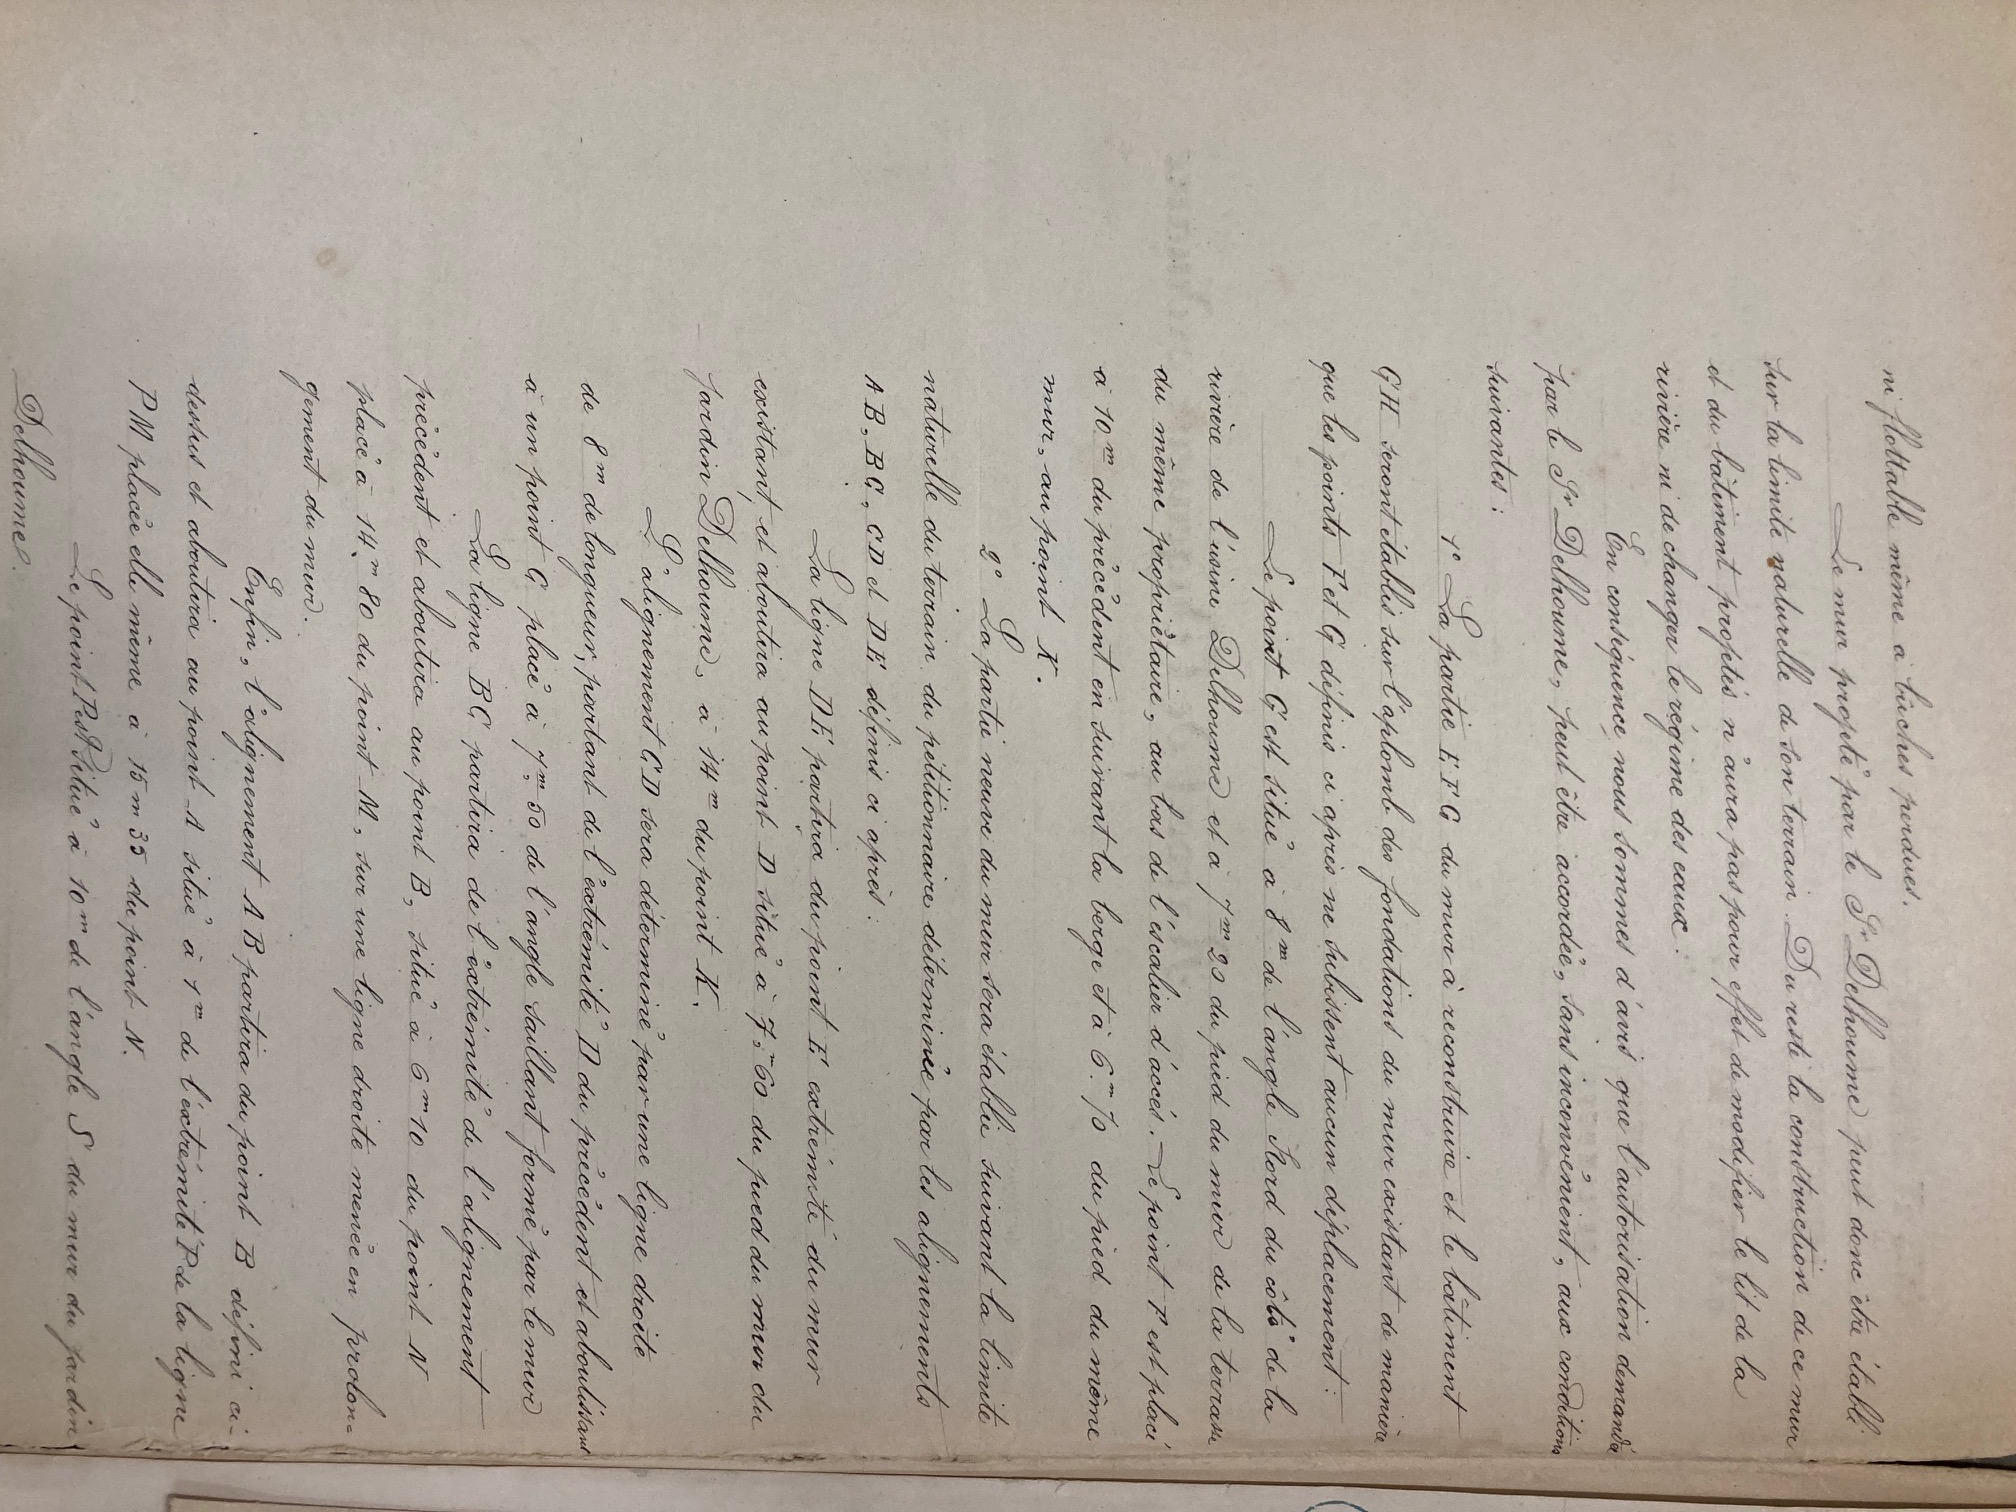 ni flottable même à bûches perdues.
Le mur projeté par le Sr Delhoume peut donc être établi
sur la limite naturelle de son terrain. Du reste la construction de ce mur
et du bâtiment projetés n'aura pas pour effet de modifier le lit de la
rivière ni de changer le régime des eaux.
En conséquence, nous sommes d'avis que l'autorisation demandée
par le Sr Delhoume, peut être accordée, sans inconvénient, aux conditions
suivantes :
1° La partie E F G du mur à reconstruire et le bâtiment
G H seront établis sur l'aplomb des fondations du mur existant de manière
que les points F et G définis ci après ne subissent aucun déplacement :
Le point G est situé à 8m de l'angle Nord du côté de la
rivière de l'usine Delhoume et à 7m 20 du pied du mur de la terrasse
du même propriétaire, au bas de l'escalier d'accès. Le point F est placé
à 10m du précédent en suivant la berge et à 6.m 70 du pied du même
mur, au point K.
2° La partie neuve du mur sera établie suivant la limite
naturelle du terrain du pétitionnaire déterminée par les alignements
A B, B C, C D et D E définis ci après :
La ligne D E partira du point E extrémité du mur
existant, et aboutira au point D situé à 7,m 60 du pied du mur du
jardin Delhoume, à 14m du point K.
L'alignement C D sera déterminé par une ligne droite
de 8m de longueur, partant de l'extrémité D du précédent et aboutissant
à un point C placé à 7,m 50 de l'angle saillant formé par le mur
La ligne B C partira de l'extrémité de l'alignement
précédent et aboutira au point B, situé à 6m 10 du point N
placé à 14,m 80 du point M, sur une ligne droite menée en prolon=
gement du mur.
Enfin, l'alignement A B partira du point B défini ci-
dessus et aboutira au point A situé à 1m de l'extrémité P de la ligne
P M placée elle même à 15m 35 du point N.
Le point P est situé à 10m de l'angle S du mur du jardin
Delhoume.